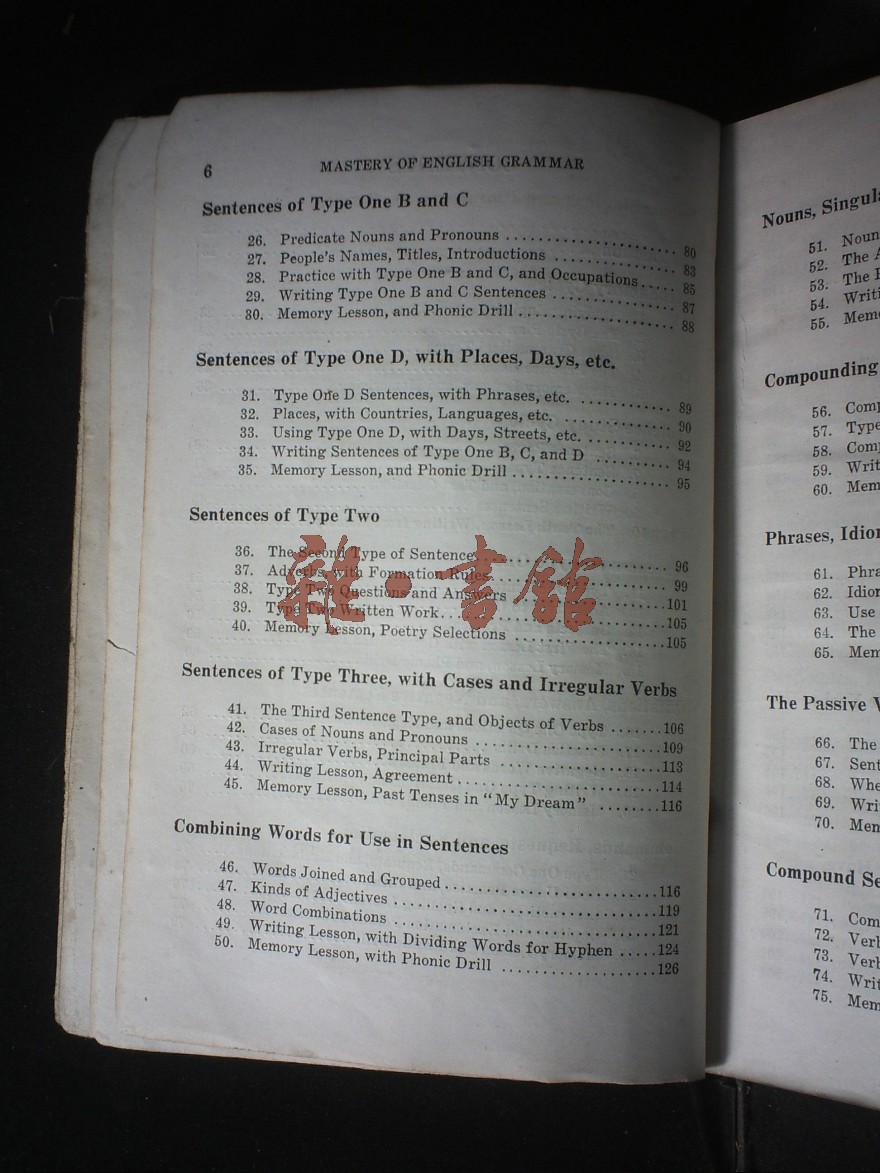 6 MASTERY OF ENGLISH GRAMMAR
Sentences of Type One B and C
26. Predicate Nouns and Pronouns ........................ 80
27. People's Names, Titles, Introductions ................ 83
28. Practice with Type One B and C, and Occupations ..... 85
29. Writing Type One B and C Sentences ................ 87
30. Memory Lesson, and Phonic Drill .................... 88
Sentences of Type One D, with Places, Days, etc.
31. Type One D Sentences, with Phrases, etc. ............ 89
32. Places, with Countries, Languages, etc. ............. 90
33. Using Type One D, with Days, Streets, etc. ........... 92
34. Writing Sentences of Type One B, C, and D .......... 94
35. Memory Lesson, and Phonic Drill .................... 95
Sentences of Type Two
36. The Second Type of Sentence ........................ 96
37. Adverbs, with Formation Rules ...................... 99
38. Type Two Questions and Answers ....................101
39. Type Two Written Work.............................105
40. Memory Lesson, Poetry Selections ...................105
Sentences of Type Three, with Cases and Irregular Verbs
41. The Third Sentence Type, and Objects of Verbs .......106
42. Cases of Nouns and Pronouns ........................109
43. Irregular Verbs, Principal Parts .....................113
44. Writing Lesson, Agreement ..........................114
45. Memory Lesson, Past Tenses in "My Dream" ........116
Combining Words for Use in Sentences
46. Words Joined and Grouped ..........................116
47. Kinds of Adjectives .................................119
48. Word Combinations .................................121
49. Writing Lesson, with Dividing Words for Hyphen .....124
50. Memory Lesson, with Phonic Drill ...................126
雜·書館
Nouns, Singul
51. Noun
52. The
53. The
54. Writi
55. Mem
Compounding
56. Comp
57. Type
58. Comp
59. Writ
60. Mem
Phrases, Idio
61. Phra
62. Idio
63. Use
64. The
65. Mem
The Passive
66. The
67. Sent
68. Whe
69. Wri
70. Mem
Compound Se
71. Com
72. Verb
73. Verb
74. Writ
75. Mem